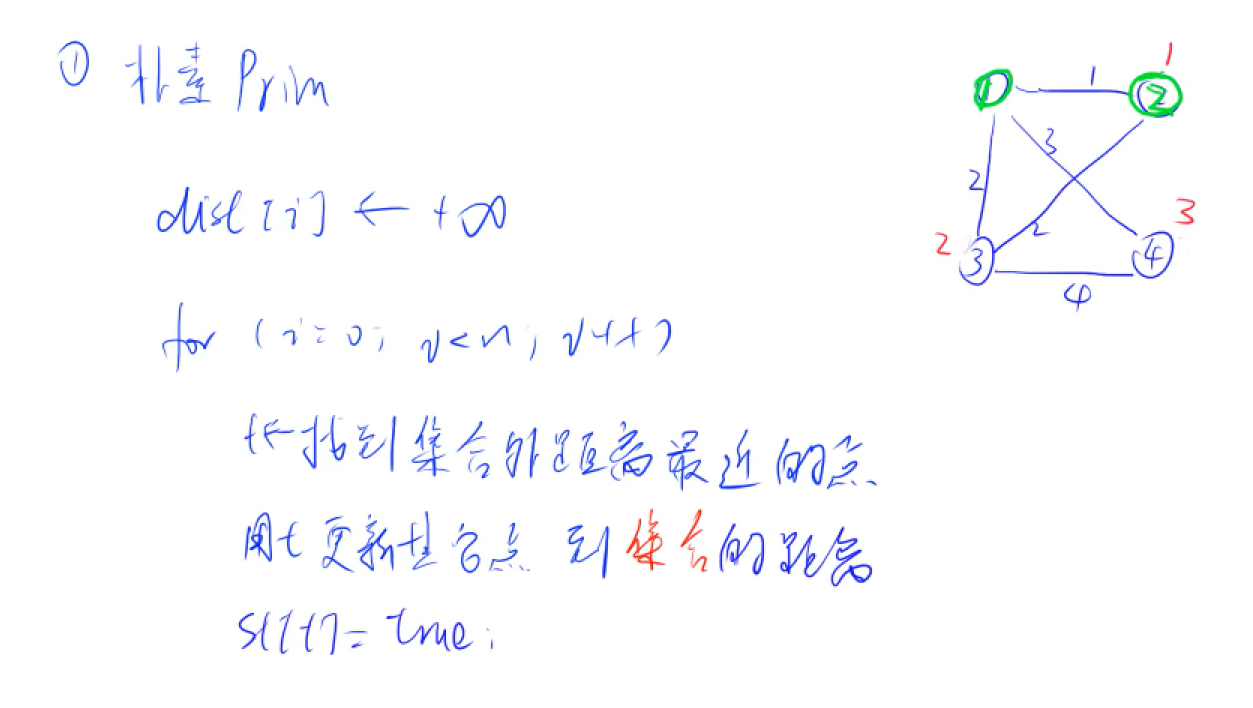 ① 朴素 Prim
dist[i] ← +∞
for (i=0; i<n; i++)
t← 找到集合外距离最近的点
用t 更新其它点 到集合的距离
st[t]= true;
1
① 1 ②
3
2
3
2 ③ 2 ④
4